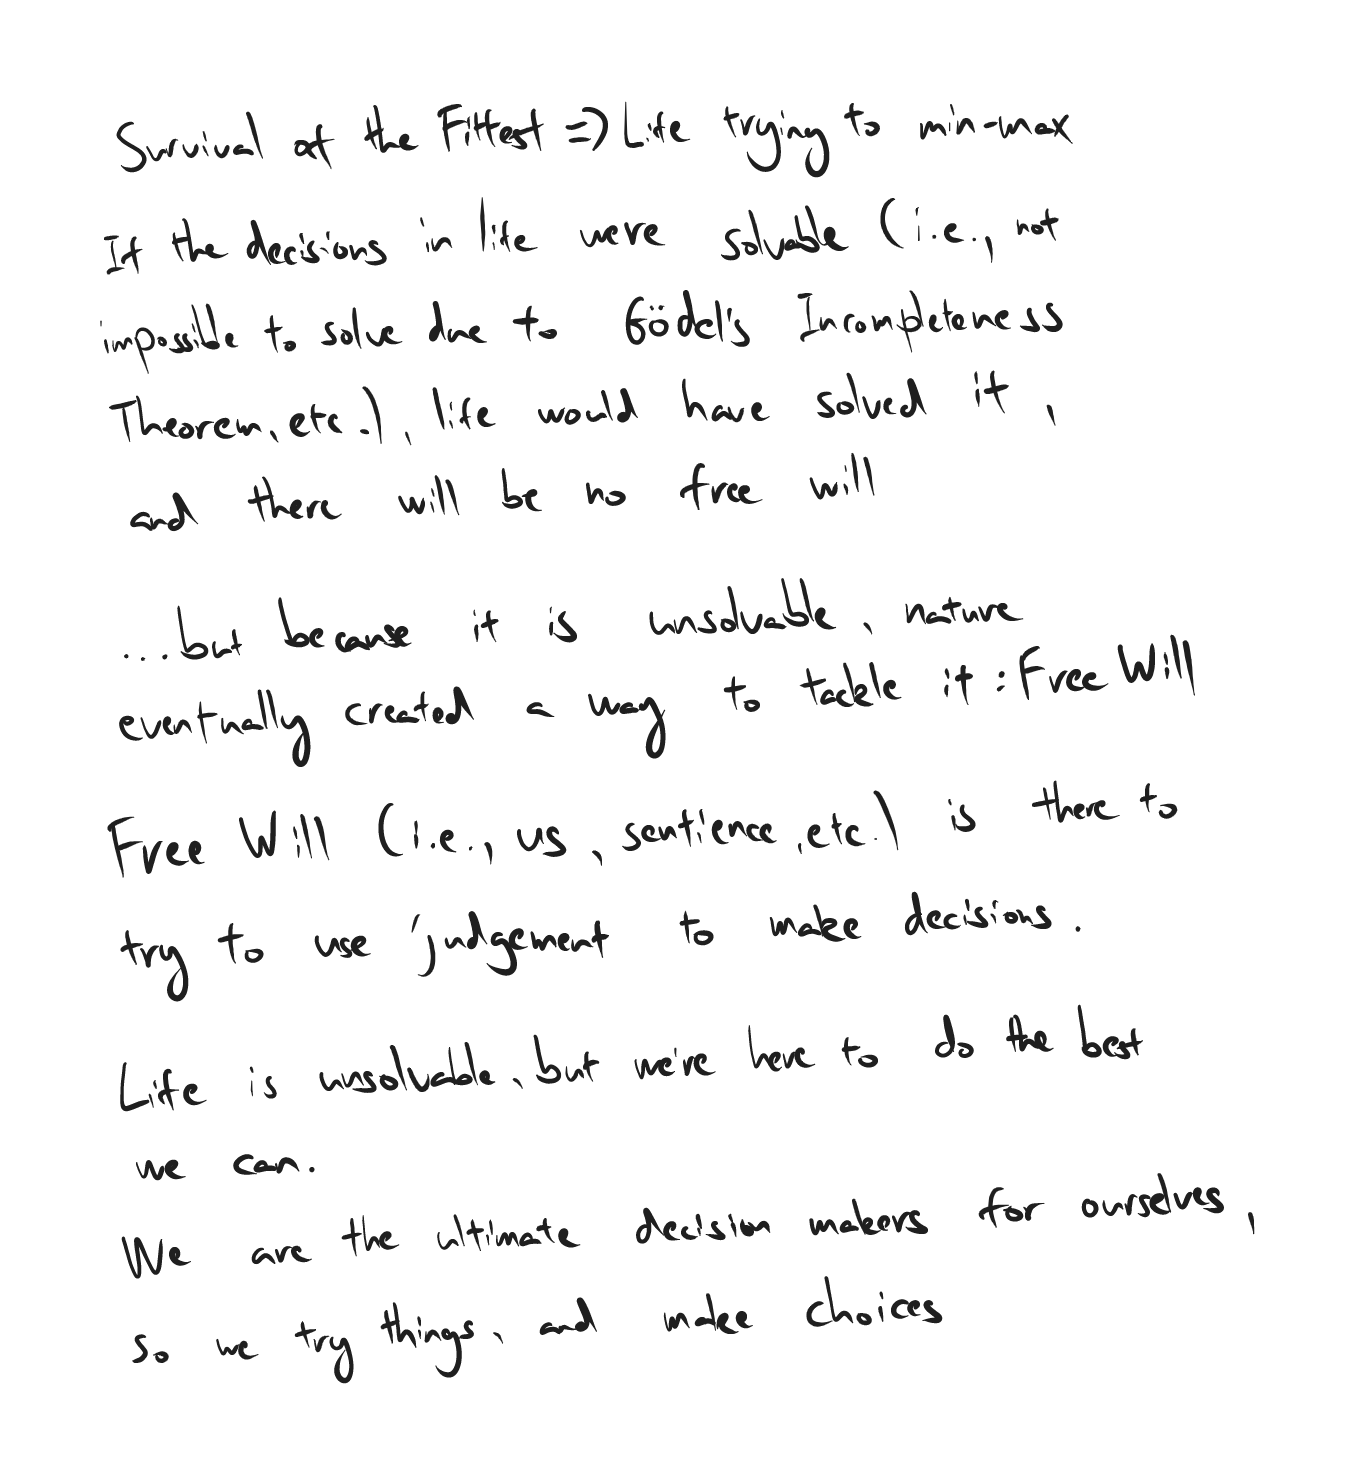 Survival of the Fittest => Life trying to min-max
If the decisions in life were solvable (i.e., not
impossible to solve due to Gödel's Incompleteness
Theorem, etc.), life would have solved it,
and there will be no free will
...but because it is unsolvable, nature
eventually created a way to tackle it: Free Will
Free Will (i.e., us, sentience, etc.) is there to
try to use judgement to make decisions.
Life is unsolvable, but we're here to do the best
we can.
We are the ultimate decision makers for ourselves,
so we try things, and make choices